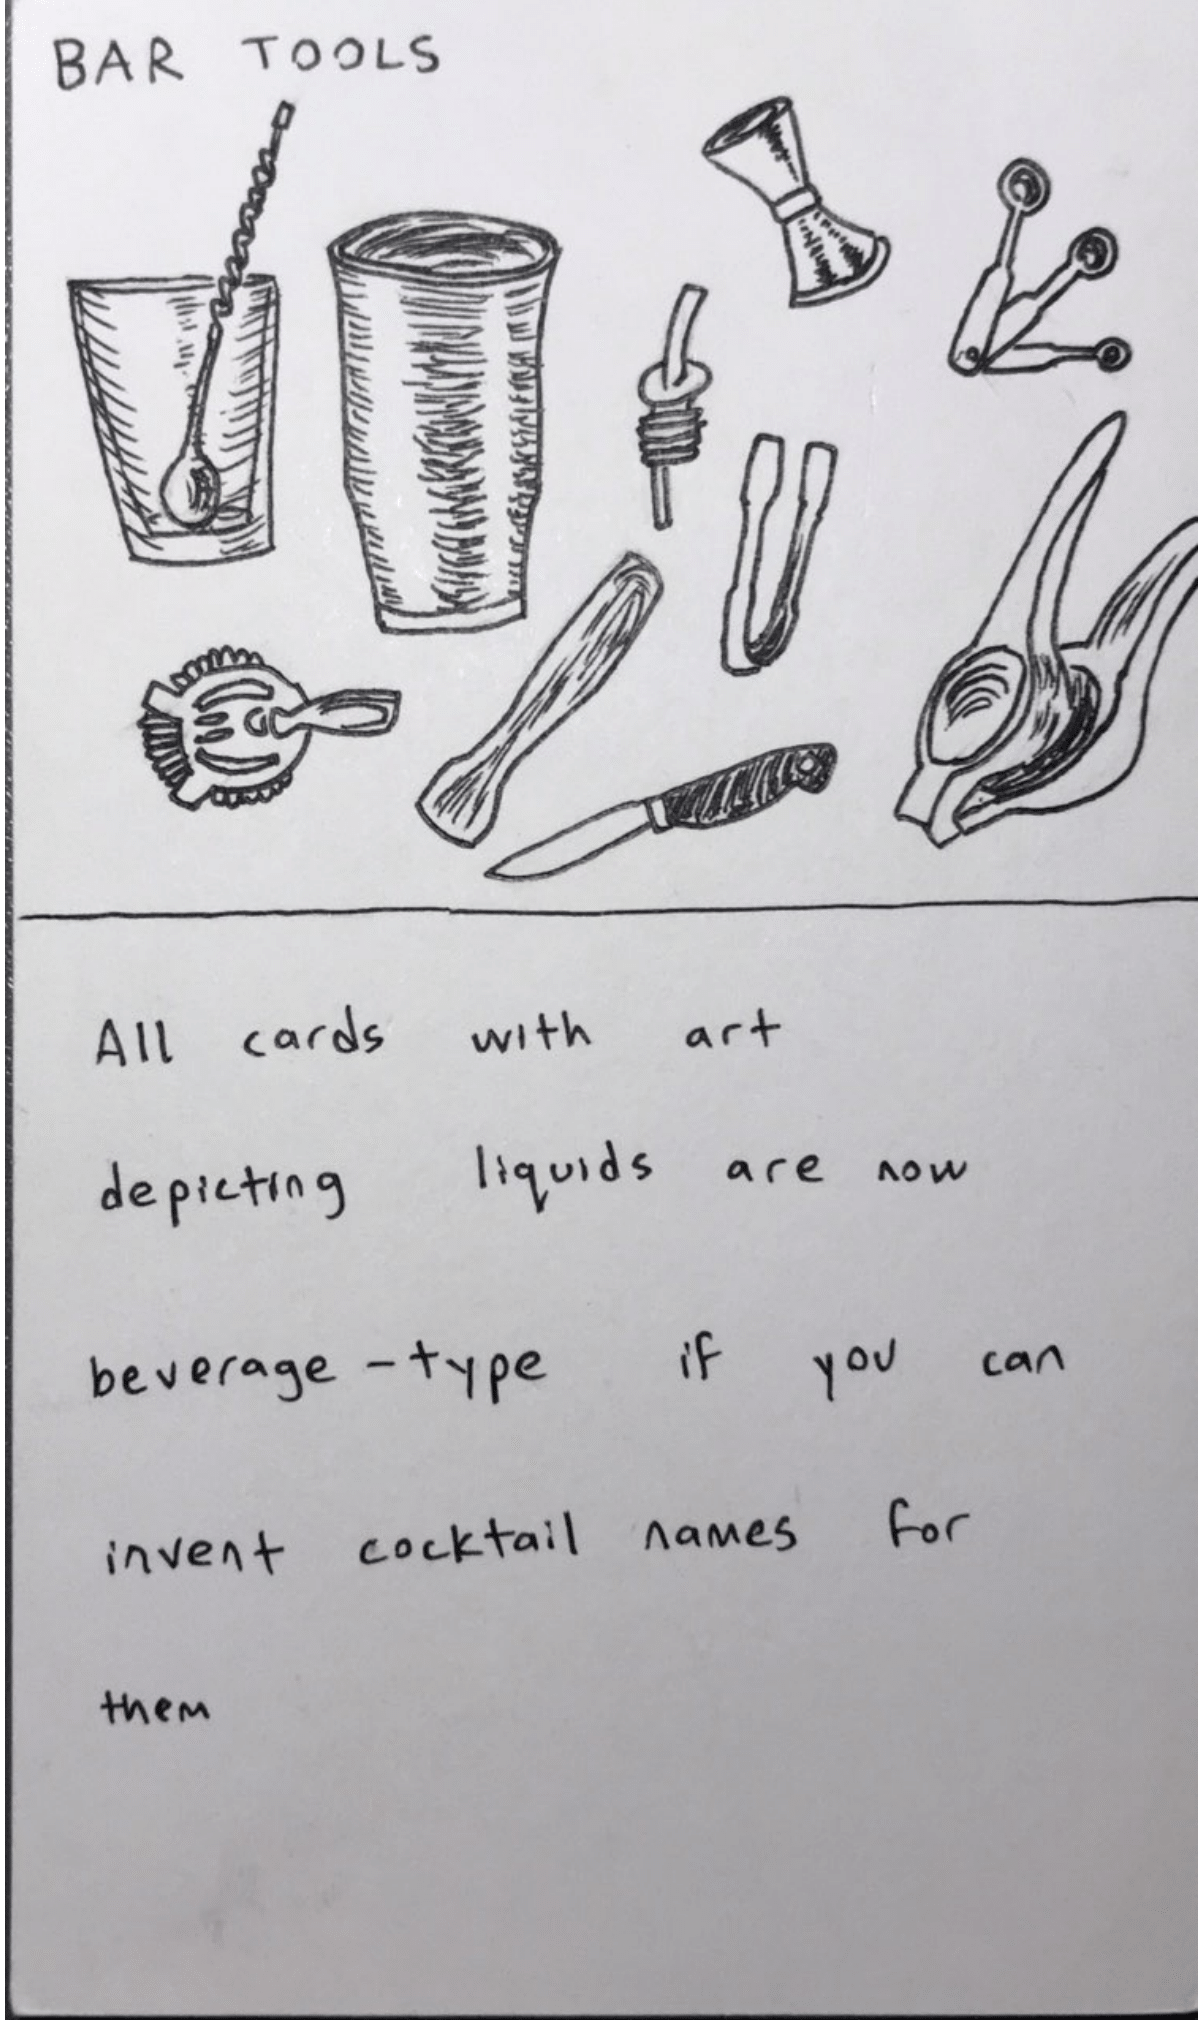 BAR TOOLS
All cards with art
depicting liquids are now
beverage-type if you can
invent cocktail names for
them